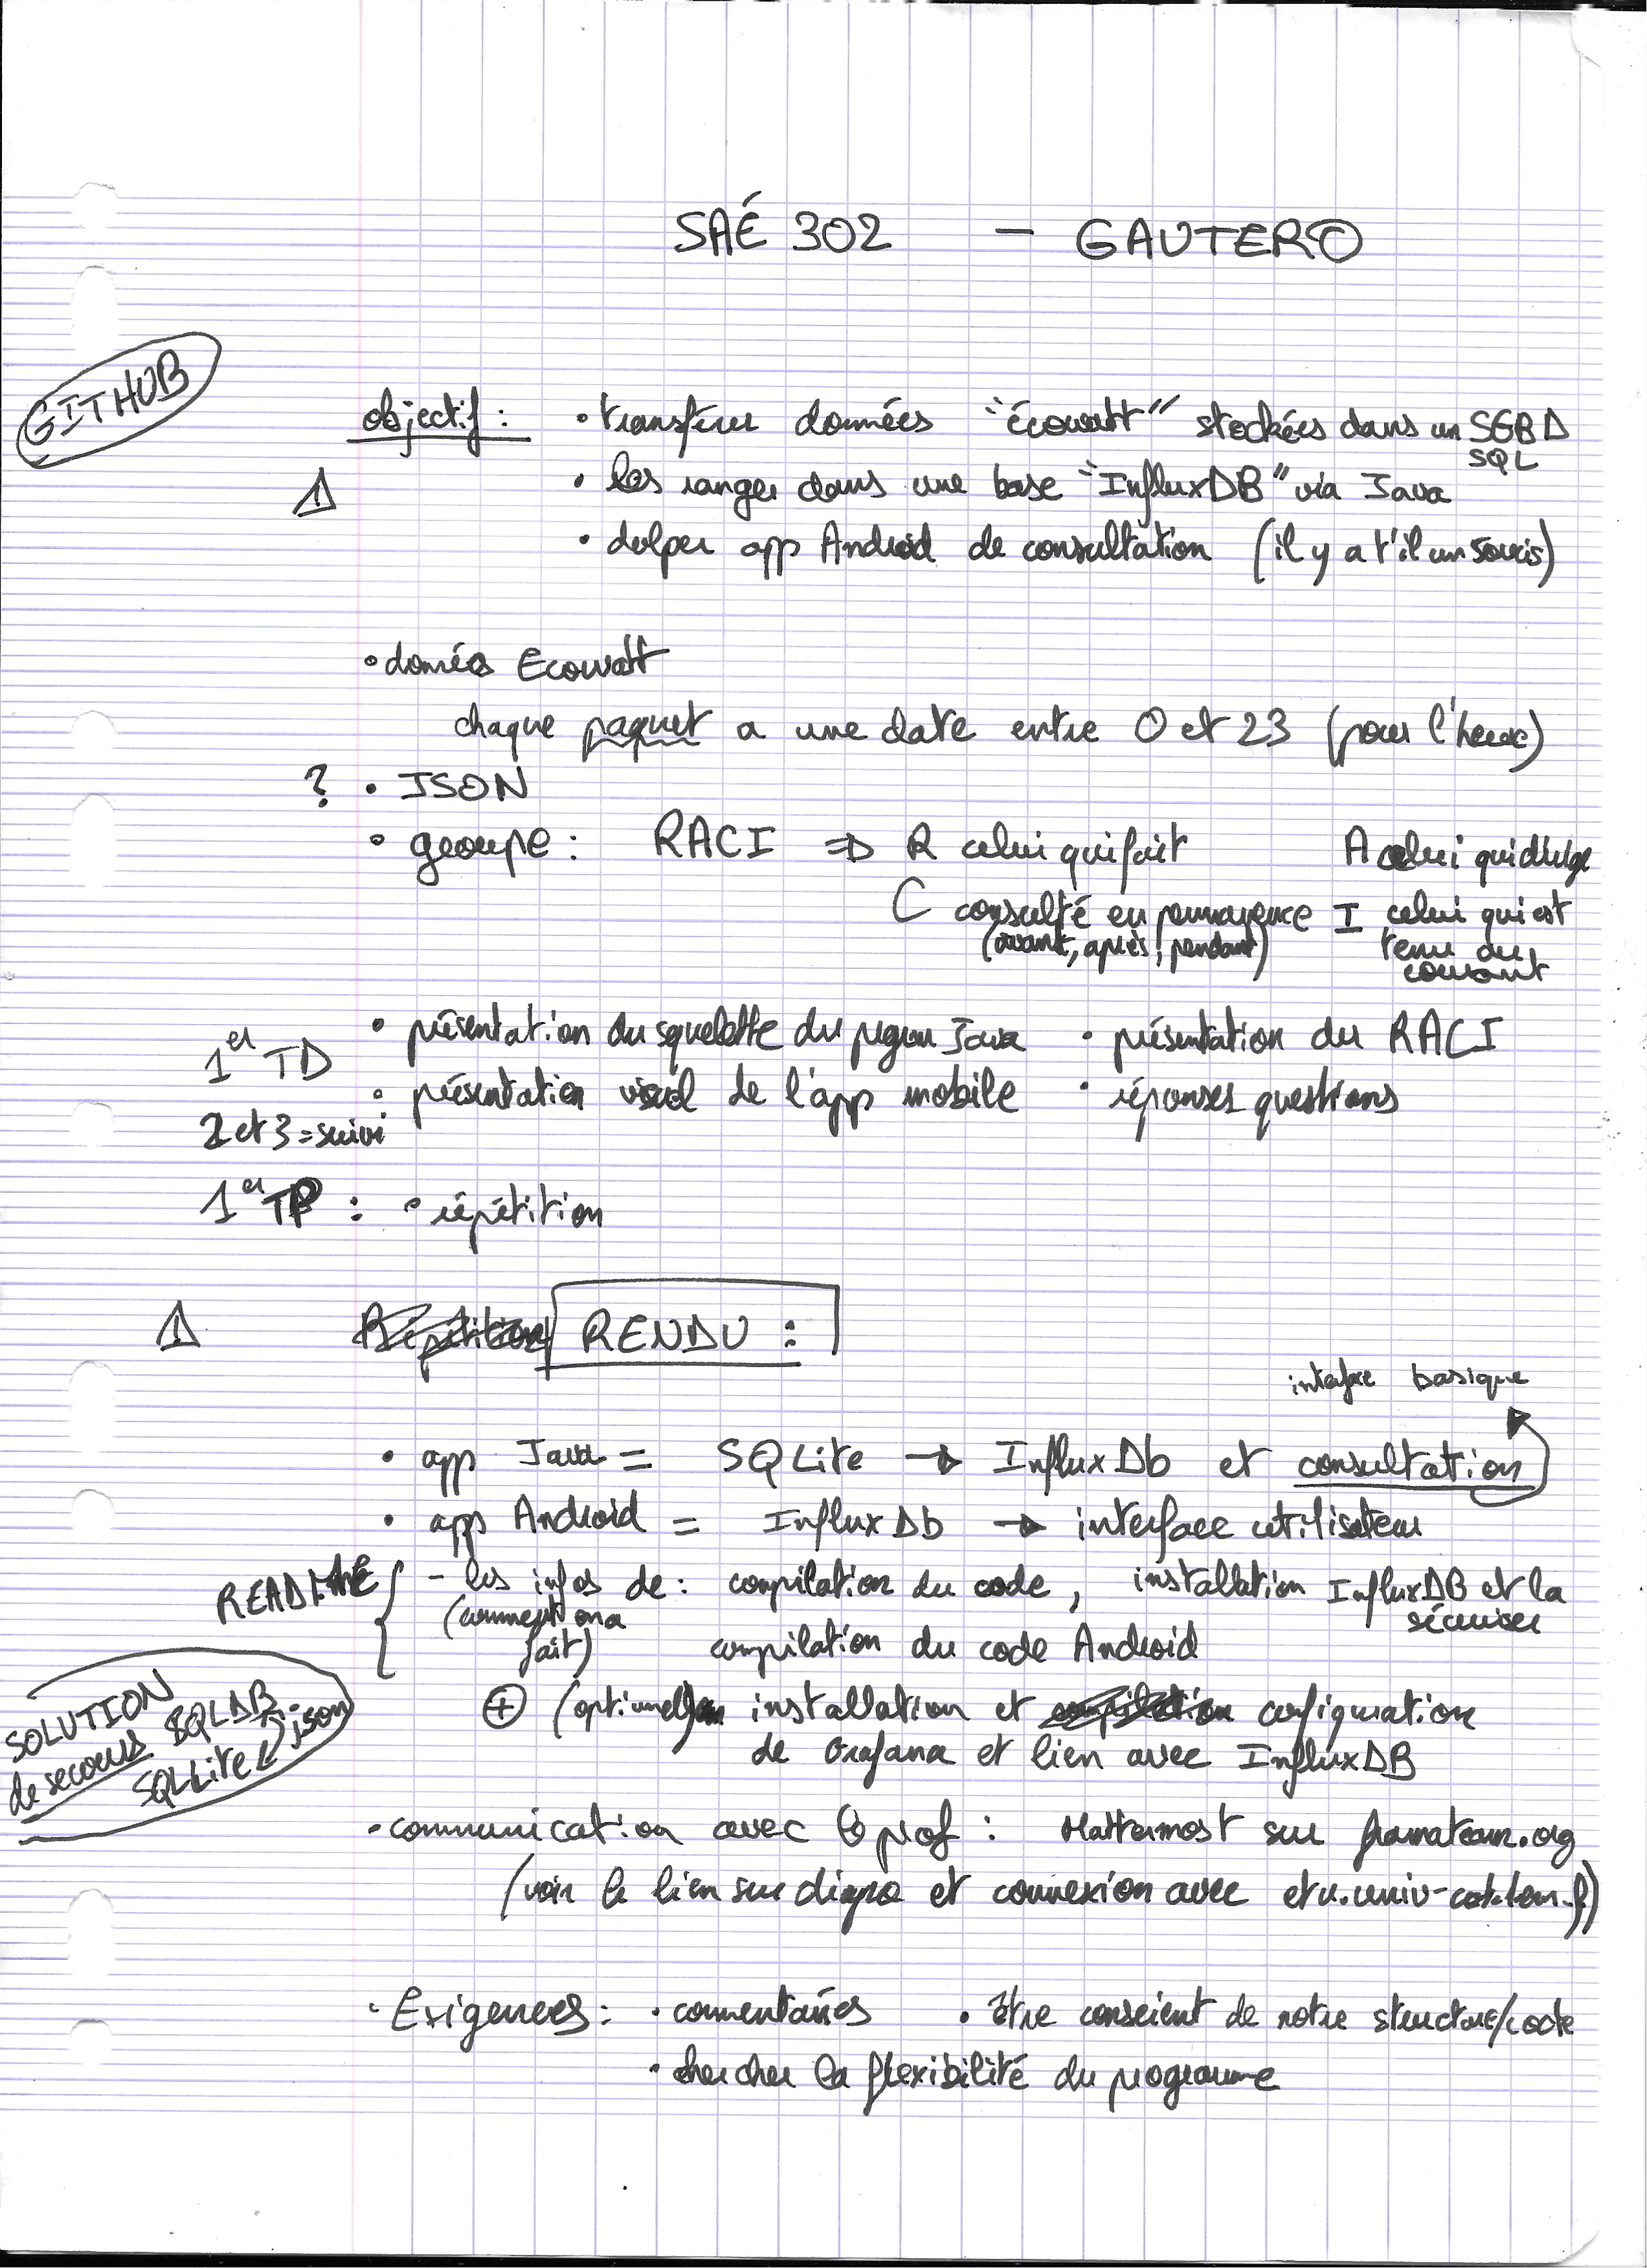 SAÉ 302 - GAUTERO
GITHUB
objectif : • transférer données "écowatt" stockées dans un SGBD
SQL
⚠ • les ranger dans une base "InfluxDB" via Java
• dvlper app Android de consultation (il y a t'il un soucis)
• données Ecowatt
chaque paquet a une date entre 0 et 23 (pour l'heure)
? • JSON
• groupe : RACI => R celui qui fait A celui qui
C consulté en permanence I celui qui est
(avant, après, pendant) tenu au
courant
1er TD • présentation du squelette du prgm Java • présentation du RACI
• présentation visuel de l'app mobile • réponses questions
2 et 3 = suivi
1er TP : • répétition
⚠ Répétition RENDU :
interface basique
• app Java = SQLite → InfluxDb et consultation
• app Android = InfluxDb → interface utilisateur
README { - les infos de : compilation du code, installation InfluxDB et la
(comment on a sécuriser
fait) compilation du code Android
⊕ (optionnel) installation et compilation configuration
de Grafana et lien avec InfluxDB
SOLUTION
de secours SQLDB
SQLLite json
• communication avec le prof : Mattermost sur framateam.org
(voir le lien sur et connexion avec etu.univ-
• Exigences : • commentaires • être conscient de notre structure/code
• chercher la flexibilité du programme